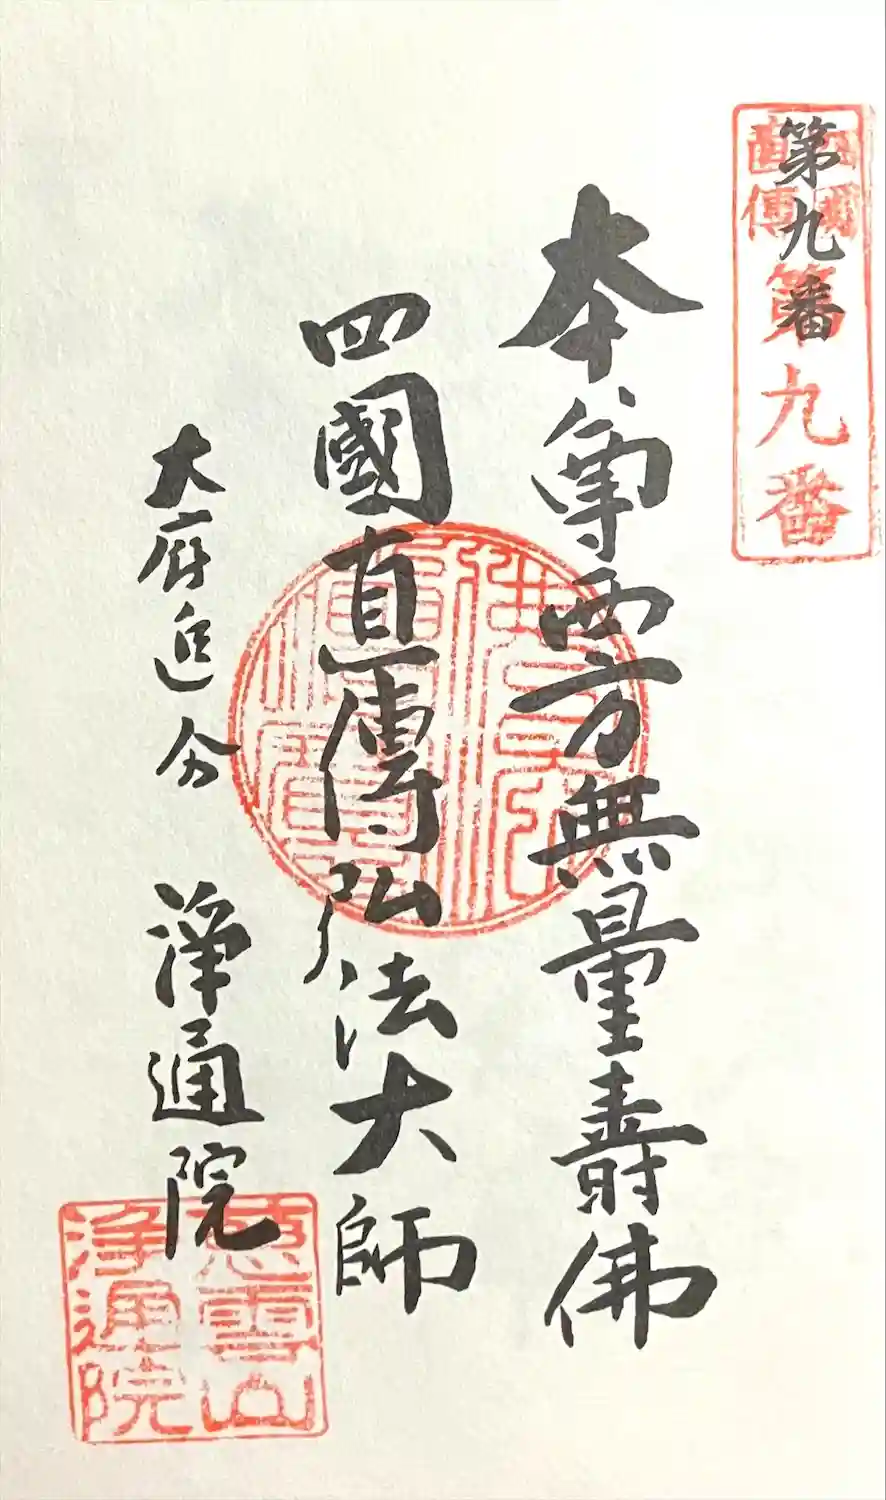 第九番
四國
直傳
第九番
本尊西方無量壽佛
四國直傳弘法大師
大府追分 淨通院
慈雲山
淨通院